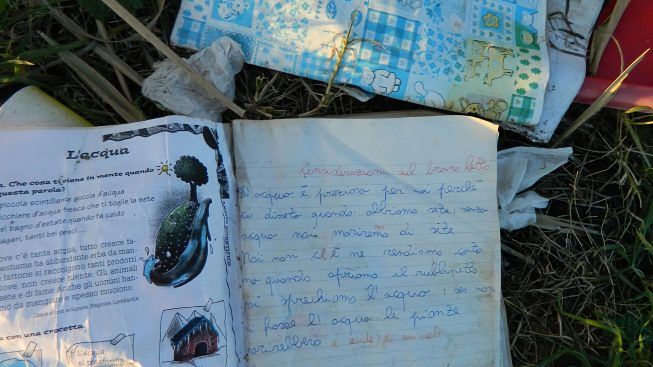 L'acqua
a. Che cosa ti viene in mente quando
questa parola?
piccola scintillante goccia d'acqua
icchiere d'acqua fresca che ti toglie la sete
el bagno d'estate quando fa caldo
agari, tanti pesci...
ove c'è tanta acqua, tutto cresce fa-
bestiame ha abbondante erba da man-
e fattorie si raccolgono tanti prodotti
dove, non cresce niente. Gli animali
sete e di fame. Anche gli uomini han-
no da mangiare e spesso muoiono.
Regione Lombardia
a con una crocetta.
L'acqua
si trasforma
Considerazioni sul brano letto
L'acqua è preziosa per noi perché
ci disseta quando abbiamo sete, senza
acqua noi moriremo di sete
Noi non ce ne rendiamo conto
ma quando apriamo il rubinetto
noi sprechiamo l'acqua, se non
ci fosse l'acqua le piante
morirebbero e anche gli animali